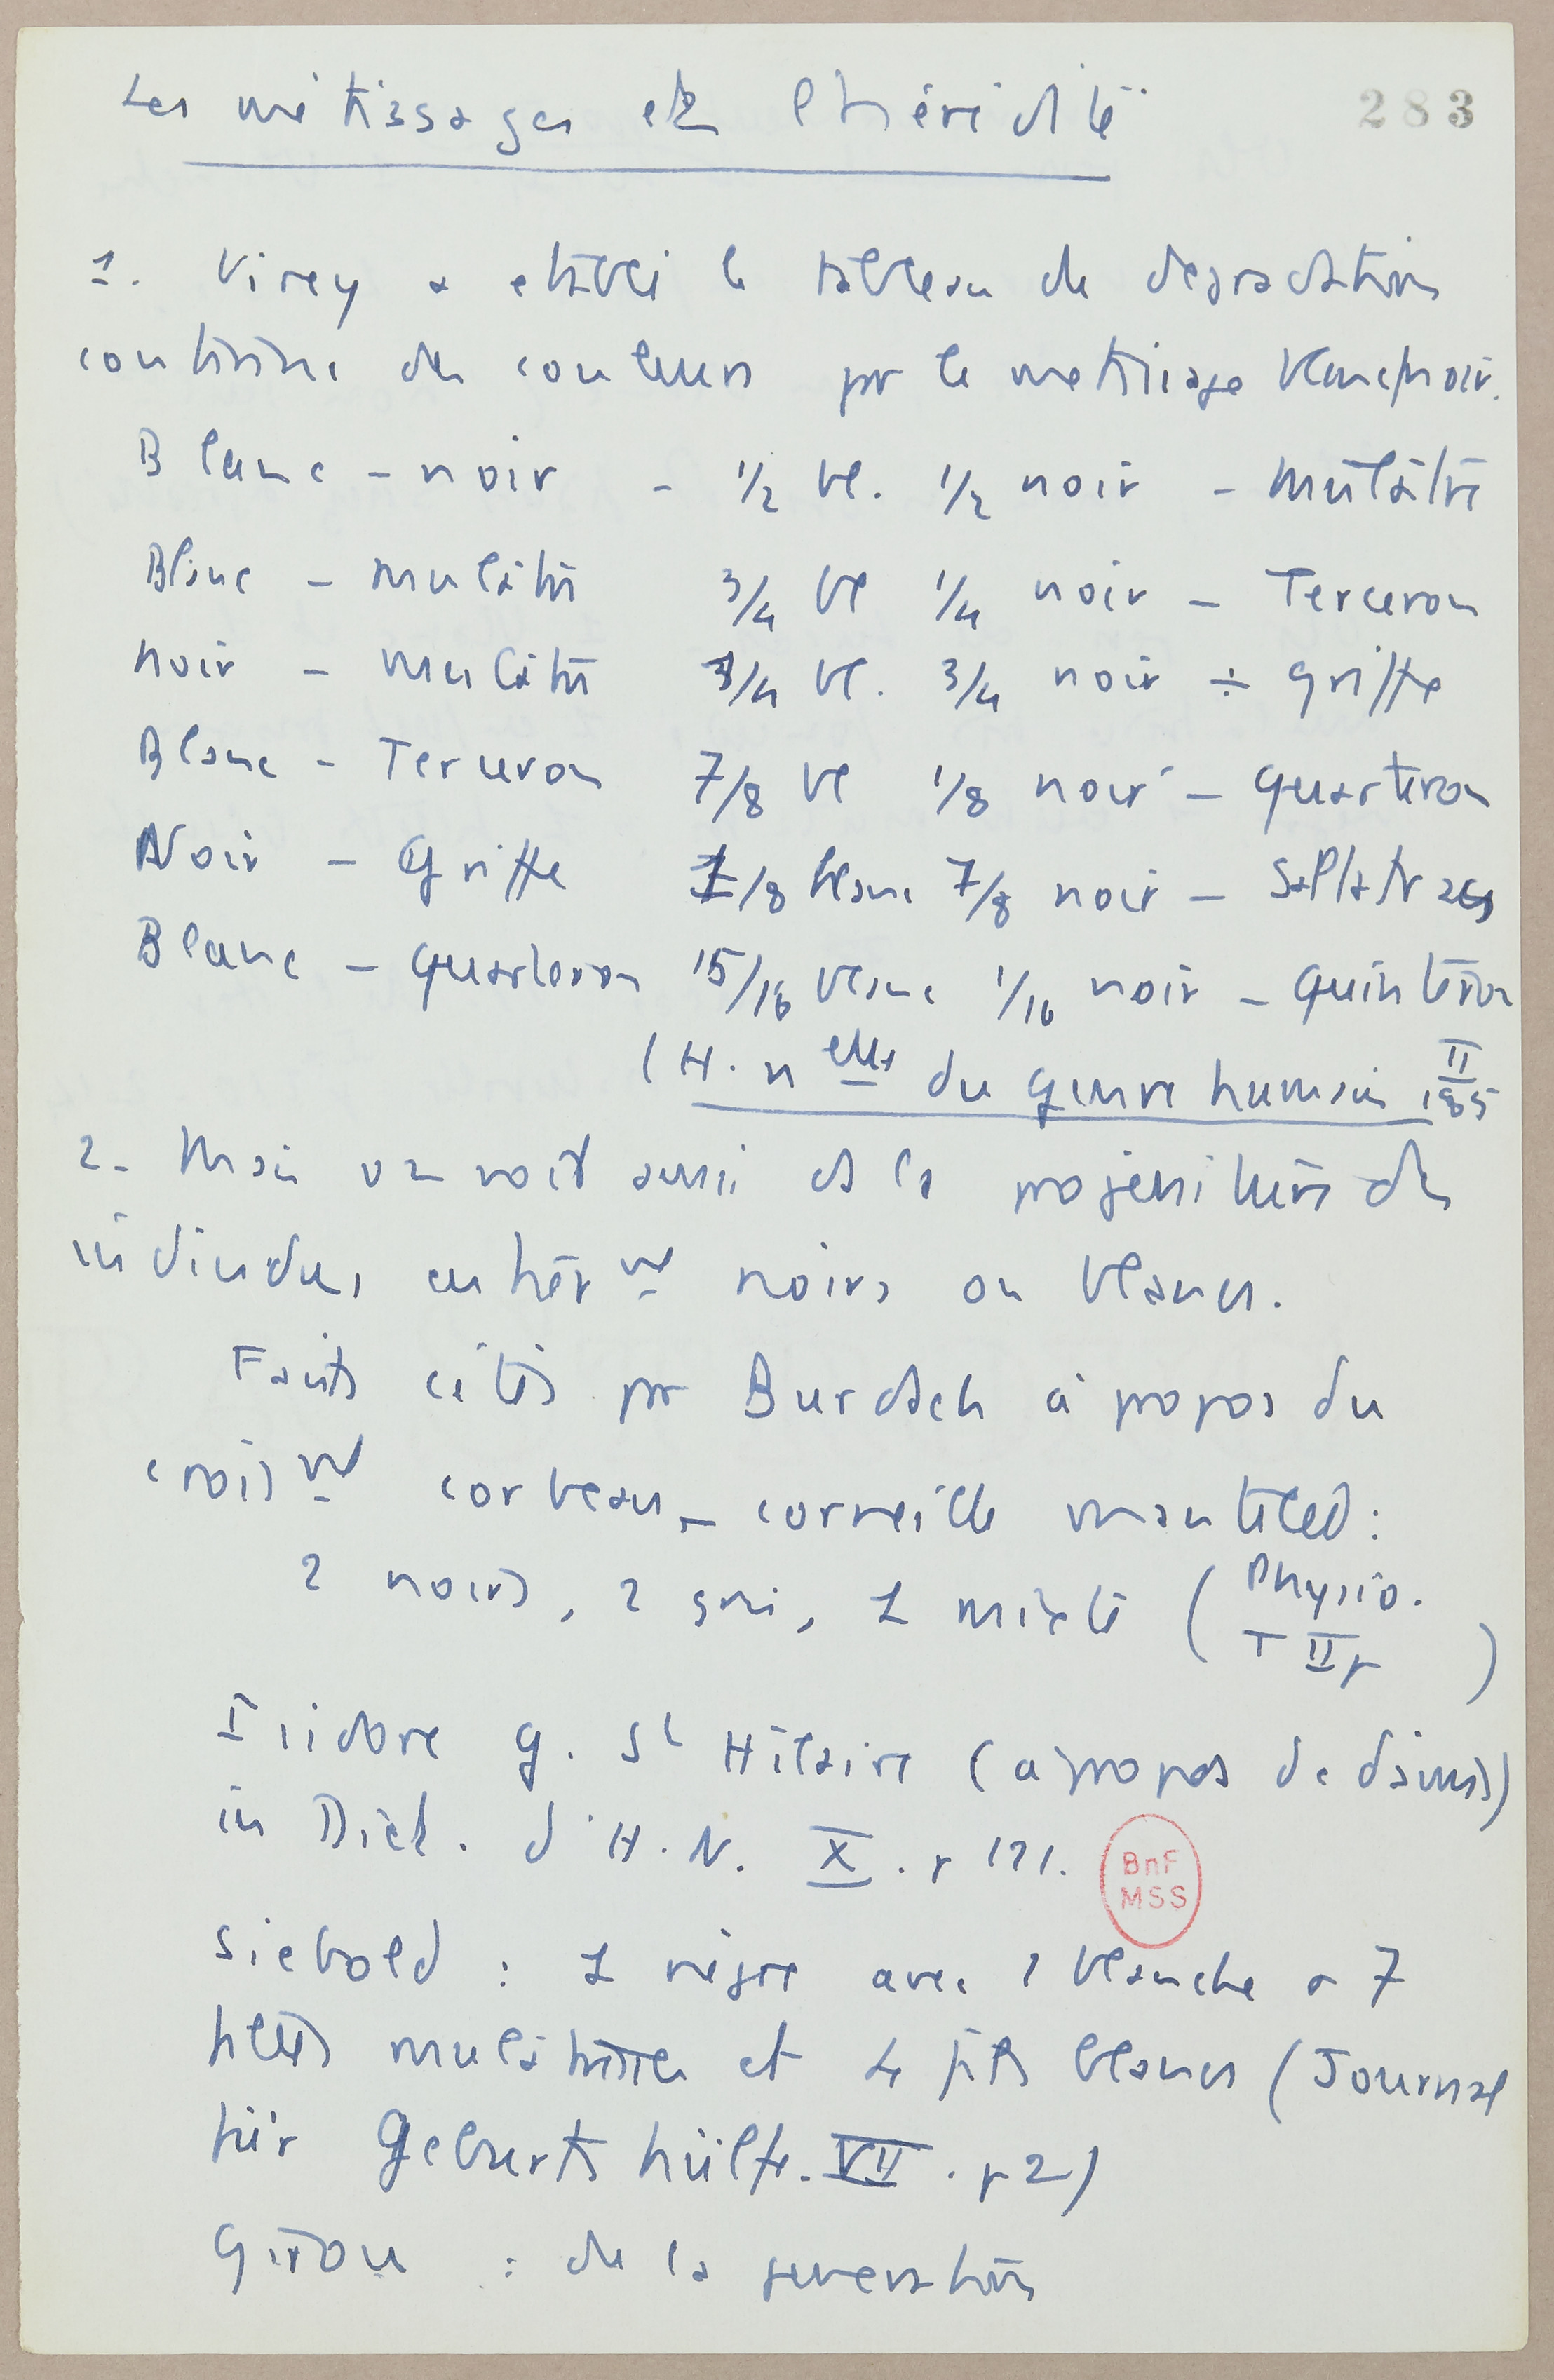 Les métissages et l'hérédité
283
1. Virey a etabli le tableau de degradation
continue des couleurs par le metissage blanc/noir.
Blanc - noir - 1/2 bl. 1/2 noir - mulâtre
Blanc - mulâtre 3/4 bl 1/4 noir - Terceron
noir - mulâtre 1/4 bl. 3/4 noir - griffe
Blanc - Terceron 7/8 bl 1/8 noir - quarteron
Noir - Griffe 1/8 blanc 7/8 noir - Saltatras
Blanc - quarteron 15/16 blanc 1/16 noir - quinteron
(H. nelle du genre humain II 185
2. Mais on voit aussi ds la progéniture des
individus entièrmt noirs ou blancs.
Faits cités par Burdach à propos du
croismt corbeau - corneille mantelée :
2 noirs, 2 gris, 1 mixte (Physio. T II p )
Isidore G. St Hilaire (à propos de daims)
in Dict. d'H. N. X. p 121.
BnF
MSS
Siebold : 1 nègre avec 1 blanche a 7
filles mulâtresses et 4 fils blancs (Journal
für Geburtshülfe. VII. p 2)
Girou : de la generation